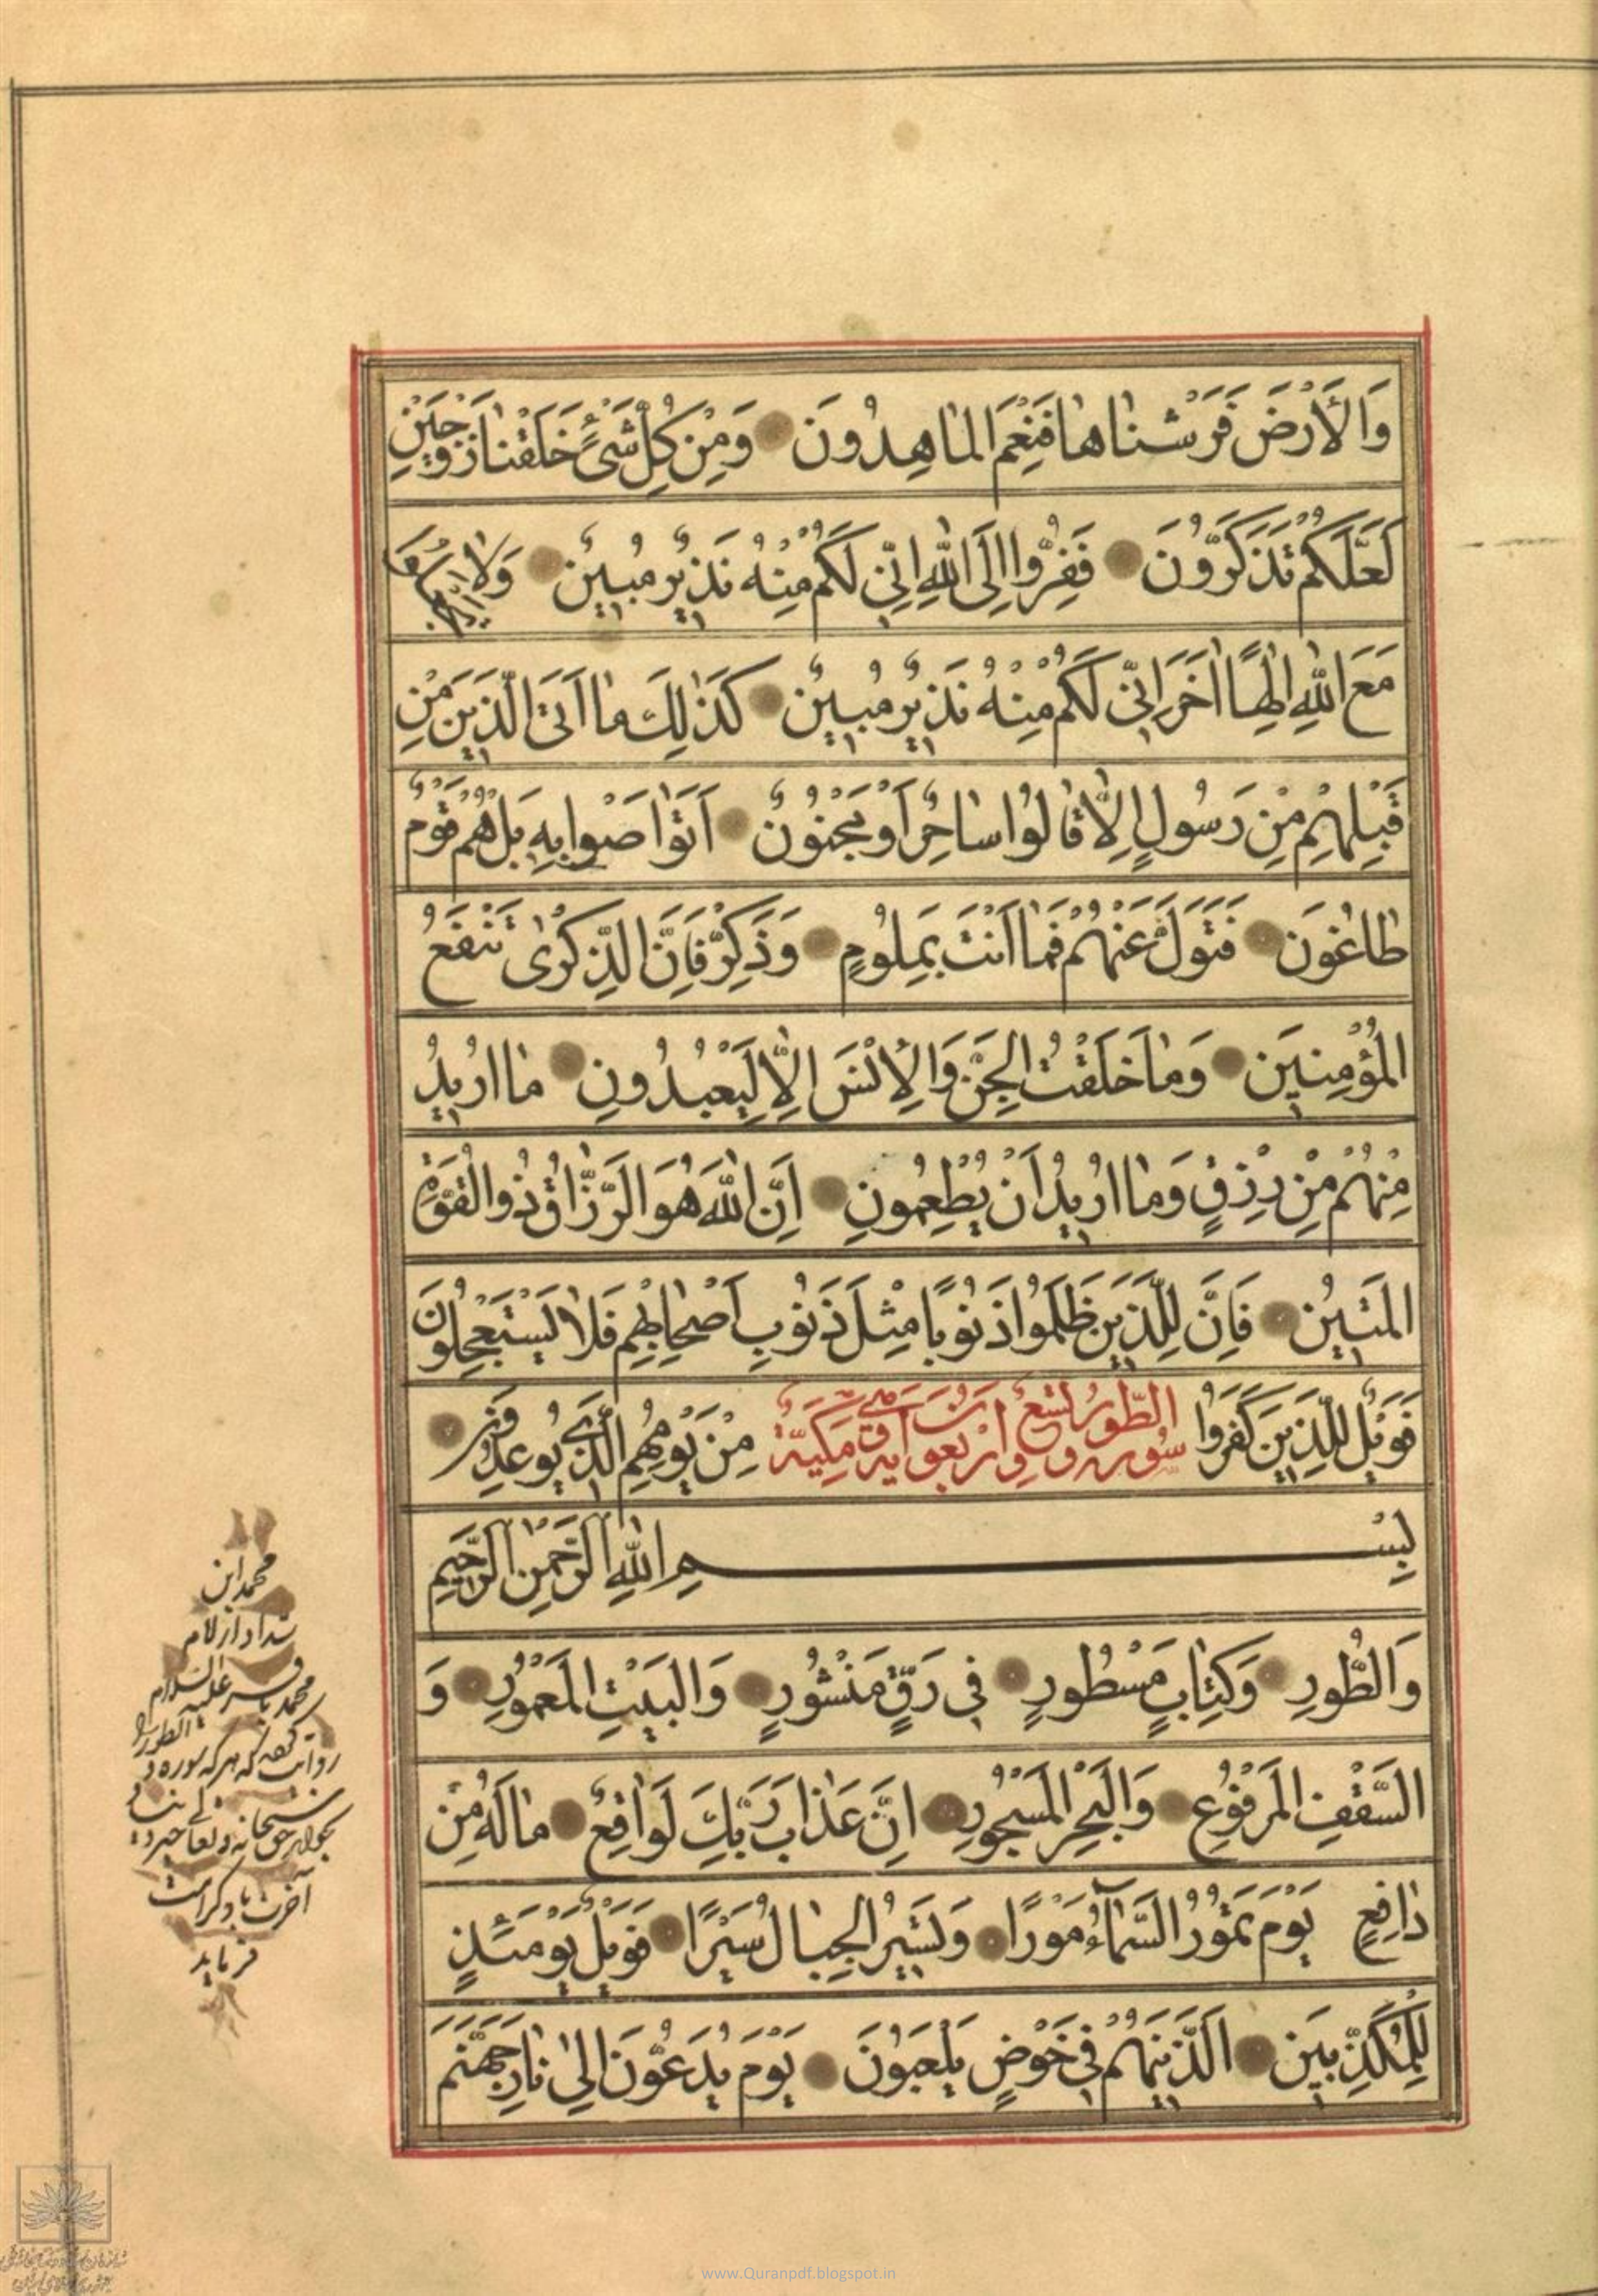 وَالْأَرْضَ فَرَشْنَاهَا فَنِعْمَ الْمَاهِدُونَ وَمِنْ كُلِّ شَيْءٍ خَلَقْنَا زَوْجَيْنِ
لَعَلَّكُمْ تَذَكَّرُونَ فَفِرُّوا إِلَى اللَّهِ إِنِّي لَكُمْ مِنْهُ نَذِيرٌ مُبِينٌ وَلَا
مَعَ اللَّهِ إِلٰهًا آخَرَ إِنِّي لَكُمْ مِنْهُ نَذِيرٌ مُبِينٌ كَذٰلِكَ مَا أَتَى الَّذِينَ مِنْ
قَبْلِهِمْ مِنْ رَسُولٍ إِلَّا قَالُوا سَاحِرٌ أَوْ مَجْنُونٌ أَتَوَاصَوْا بِهِ بَلْ هُمْ قَوْمٌ
طَاغُونَ فَتَوَلَّ عَنْهُمْ فَمَا أَنْتَ بِمَلُومٍ وَذَكِّرْ فَإِنَّ الذِّكْرٰى تَنْفَعُ
الْمُؤْمِنِينَ وَمَا خَلَقْتُ الْجِنَّ وَالْإِنْسَ إِلَّا لِيَعْبُدُونِ مَا أُرِيدُ
مِنْهُمْ مِنْ رِزْقٍ وَمَا أُرِيدُ أَنْ يُطْعِمُونِ إِنَّ اللَّهَ هُوَ الرَّزَّاقُ ذُو الْقُوَّةِ
الْمَتِينُ فَإِنَّ لِلَّذِينَ ظَلَمُوا ذَنُوبًا مِثْلَ ذَنُوبِ أَصْحَابِهِمْ فَلَا يَسْتَعْجِلُونَ
فَوَيْلٌ لِلَّذِينَ كَفَرُوا سورة الطور تسع وأربعون آية مكية مِنْ يَوْمِهِمُ الَّذِي يُوعَدُونَ
بِسْمِ اللَّهِ الرَّحْمٰنِ الرَّحِيمِ
وَالطُّورِ وَكِتَابٍ مَسْطُورٍ فِي رَقٍّ مَنْشُورٍ وَالْبَيْتِ الْمَعْمُورِ وَ
السَّقْفِ الْمَرْفُوعِ وَالْبَحْرِ الْمَسْجُورِ إِنَّ عَذَابَ رَبِّكَ لَوَاقِعٌ مَا لَهُ مِنْ
دَافِعٍ يَوْمَ تَمُورُ السَّمَاءُ مَوْرًا وَتَسِيرُ الْجِبَالُ سَيْرًا فَوَيْلٌ يَوْمَئِذٍ
لِلْمُكَذِّبِينَ الَّذِينَ هُمْ فِي خَوْضٍ يَلْعَبُونَ يَوْمَ يُدَعُّونَ إِلَى نَارِ جَهَنَّمَ
محمد ابن
محمد باقر علیه السلام
روایت که هر که سوره والطور را
بخواند حق سبحانه و تعالی خیر دنیا و
آخرت با او کرامت
فرماید
www.Quranpdf.blogspot.in